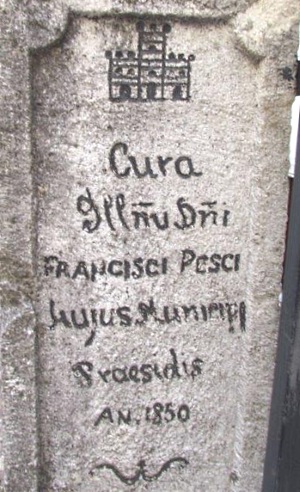 Cura
Illñu Dñi
FRANCISCI PESCI
hujus Municipii
Praesidis
AN. 1850